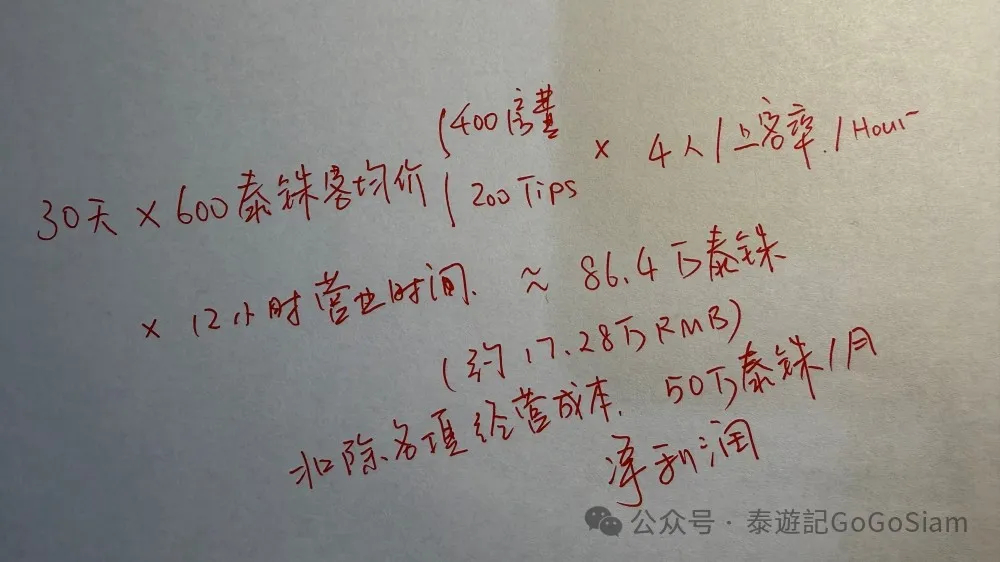 30天 × 600泰铢客均价 (400房费 / 200 Tips × 4人/上客率./Hour
× 12小时营业时间. ≈ 86.4万泰铢
(约17.28万RMB)
扣除各项经营成本. 50万泰铢/月
净利润
公众号 · 泰遊記GoGoSiam